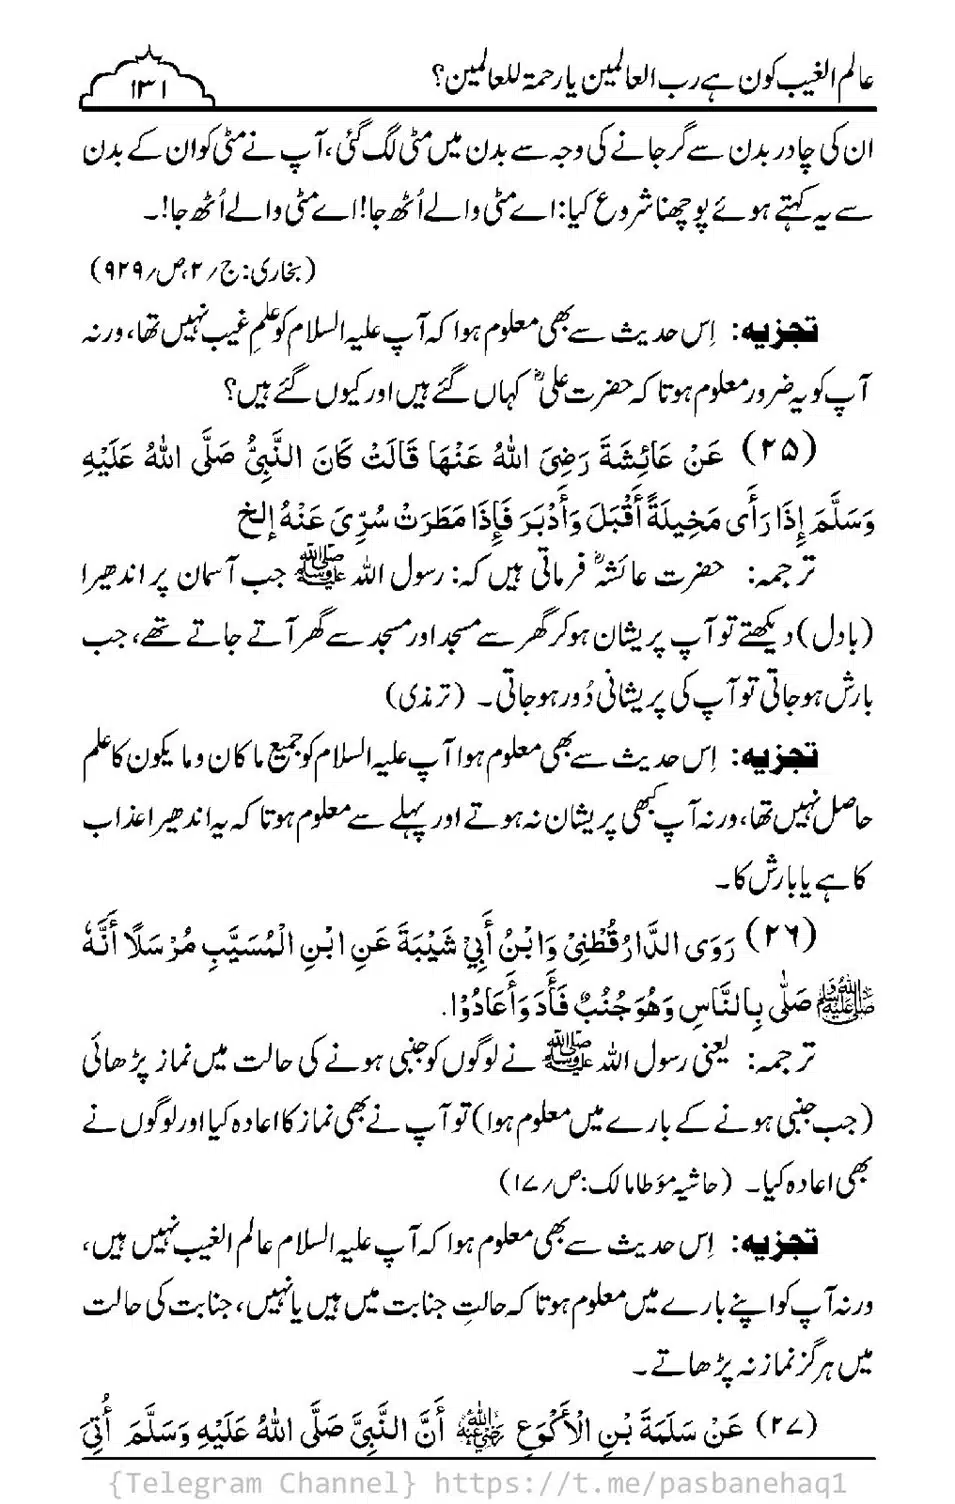 عالم الغیب کون ہے رب العالمین یا رحمۃ للعالمین؟
۱۳۱
ان کی چادر بدن سے گر جانے کی وجہ سے بدن میں مٹی لگ گئی، آپ نے مٹی کو ان کے بدن
سے یہ کہتے ہوئے پوچھنا شروع کیا: اے مٹی والے اُٹھ جا! اے مٹی والے اُٹھ جا!۔
(بخاری: ج/۲،ص/۹۲۹)
تجزیه: اِس حدیث سے بھی معلوم ہوا کہ آپ علیہ السلام کو علمِ غیب نہیں تھا، ورنہ
آپ کو یہ ضرور معلوم ہوتا کہ حضرت علیؓ کہاں گئے ہیں اور کیوں گئے ہیں؟
(۲۵) عَنْ عَائِشَةَ رَضِيَ اللهُ عَنْهَا قَالَتْ كَانَ النَّبِيُّ صَلَّى اللهُ عَلَيْهِ
وَسَلَّمَ إِذَا رَأَى مَخِيلَةً أَقْبَلَ وَأَدْبَرَ فَإِذَا مَطَرَتْ سُرِّيَ عَنْهُ إلخ
ترجمہ: حضرت عائشہؓ فرماتی ہیں کہ: رسول اللہ ﷺ جب آسمان پر اندھیرا
(بادل) دیکھتے تو آپ پریشان ہوکر گھر سے مسجد اور مسجد سے گھر آتے جاتے تھے، جب
بارش ہوجاتی تو آپ کی پریشانی دُور ہوجاتی۔ (ترمذی)
تجزیه: اِس حدیث سے بھی معلوم ہوا آپ علیہ السلام کو جمیع ما کان وما یکون کا علم
حاصل نہیں تھا، ورنہ آپ کبھی پریشان نہ ہوتے اور پہلے سے معلوم ہوتا کہ یہ اندھیرا عذاب
کا ہے یا بارش کا۔
(۲۶) رَوَى الدَّارُقُطْنِيْ وَابْنُ أَبِيْ شَيْبَةَ عَنِ ابْنِ الْمُسَيَّبِ مُرْسَلًا أَنَّهُ
ﷺ صَلّٰى بِالنَّاسِ وَهُوَ جُنُبٌ فَأَدَ وَأَعَادُوْا.
ترجمہ: یعنی رسول اللہ ﷺ نے لوگوں کو جنبی ہونے کی حالت میں نماز پڑھائی
(جب جنبی ہونے کے بارے میں معلوم ہوا) تو آپ نے بھی نماز کا اعادہ کیا اور لوگوں نے
بھی اعادہ کیا۔ (حاشیہ مؤطا مالک: ص/۱۷)
تجزیه: اِس حدیث سے بھی معلوم ہوا کہ آپ علیہ السلام عالم الغیب نہیں ہیں،
ورنہ آپ کو اپنے بارے میں معلوم ہوتا کہ حالتِ جنابت میں ہیں یا نہیں، جنابت کی حالت
میں ہرگز نماز نہ پڑھاتے۔
(۲۷) عَنْ سَلَمَةَ بْنِ الْأَكْوَعِ رضی اللہ عنہ أَنَّ النَّبِيَّ صَلَّى اللهُ عَلَيْهِ وَسَلَّمَ أُتِيَ
{Telegram Channel} https://t.me/pasbanehaq1